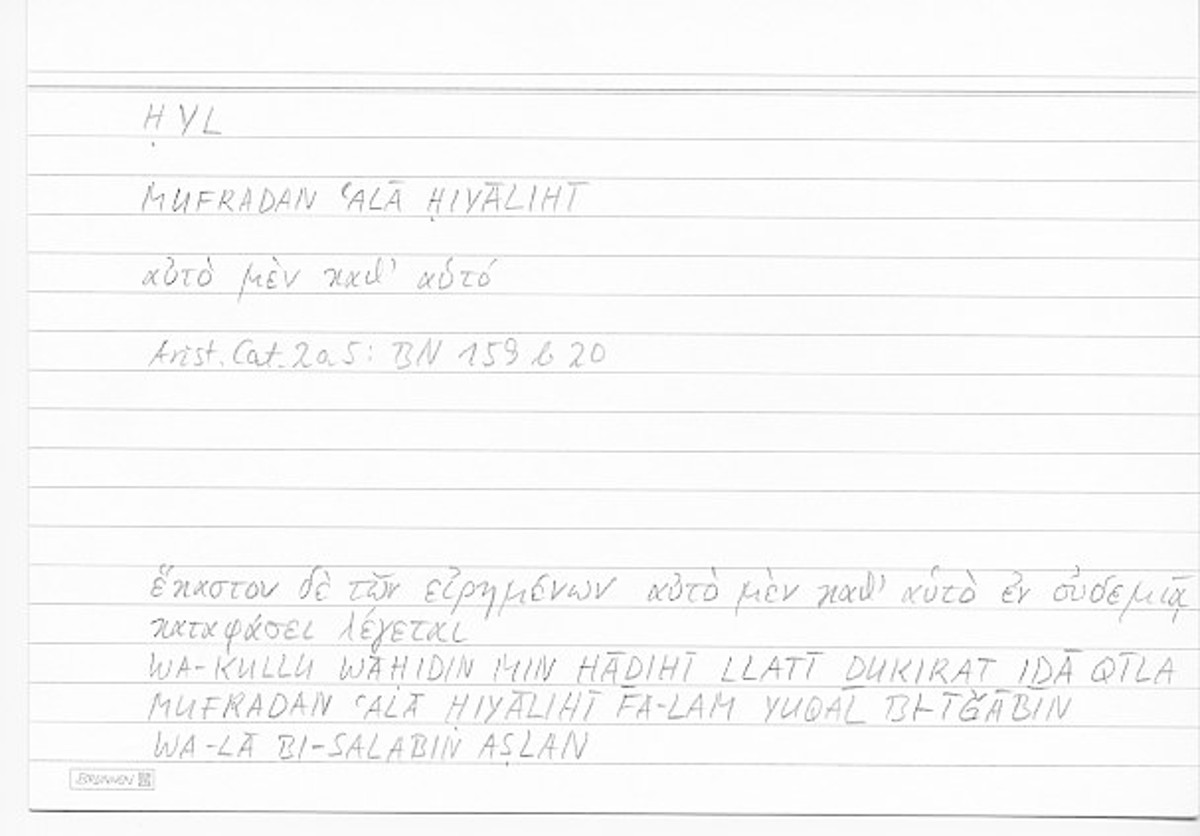 ḤYL
MUFRADAN ʿALĀ ḤIYĀLIHĪ
αὐτὸ μὲν καθ' αὑτό
Arist. Cat. 2a5: BN 159 b 20
ἕκαστον δὲ τῶν εἰρημένων αὐτὸ μὲν καθ' αὑτὸ ἐν οὐδεμιᾷ
καταφάσει λέγεται
WA-KULLU WĀḤIDIN MIN HĀḎIHĪ LLATĪ ḎUKIRAT IḎĀ QĪLA
MUFRADAN ʿALĀ ḤIYĀLIHĪ FA-LAM YUQAL BI-ĪǦĀBIN
WA-LĀ BI-SALABIN AṢLAN
BRUNNEN